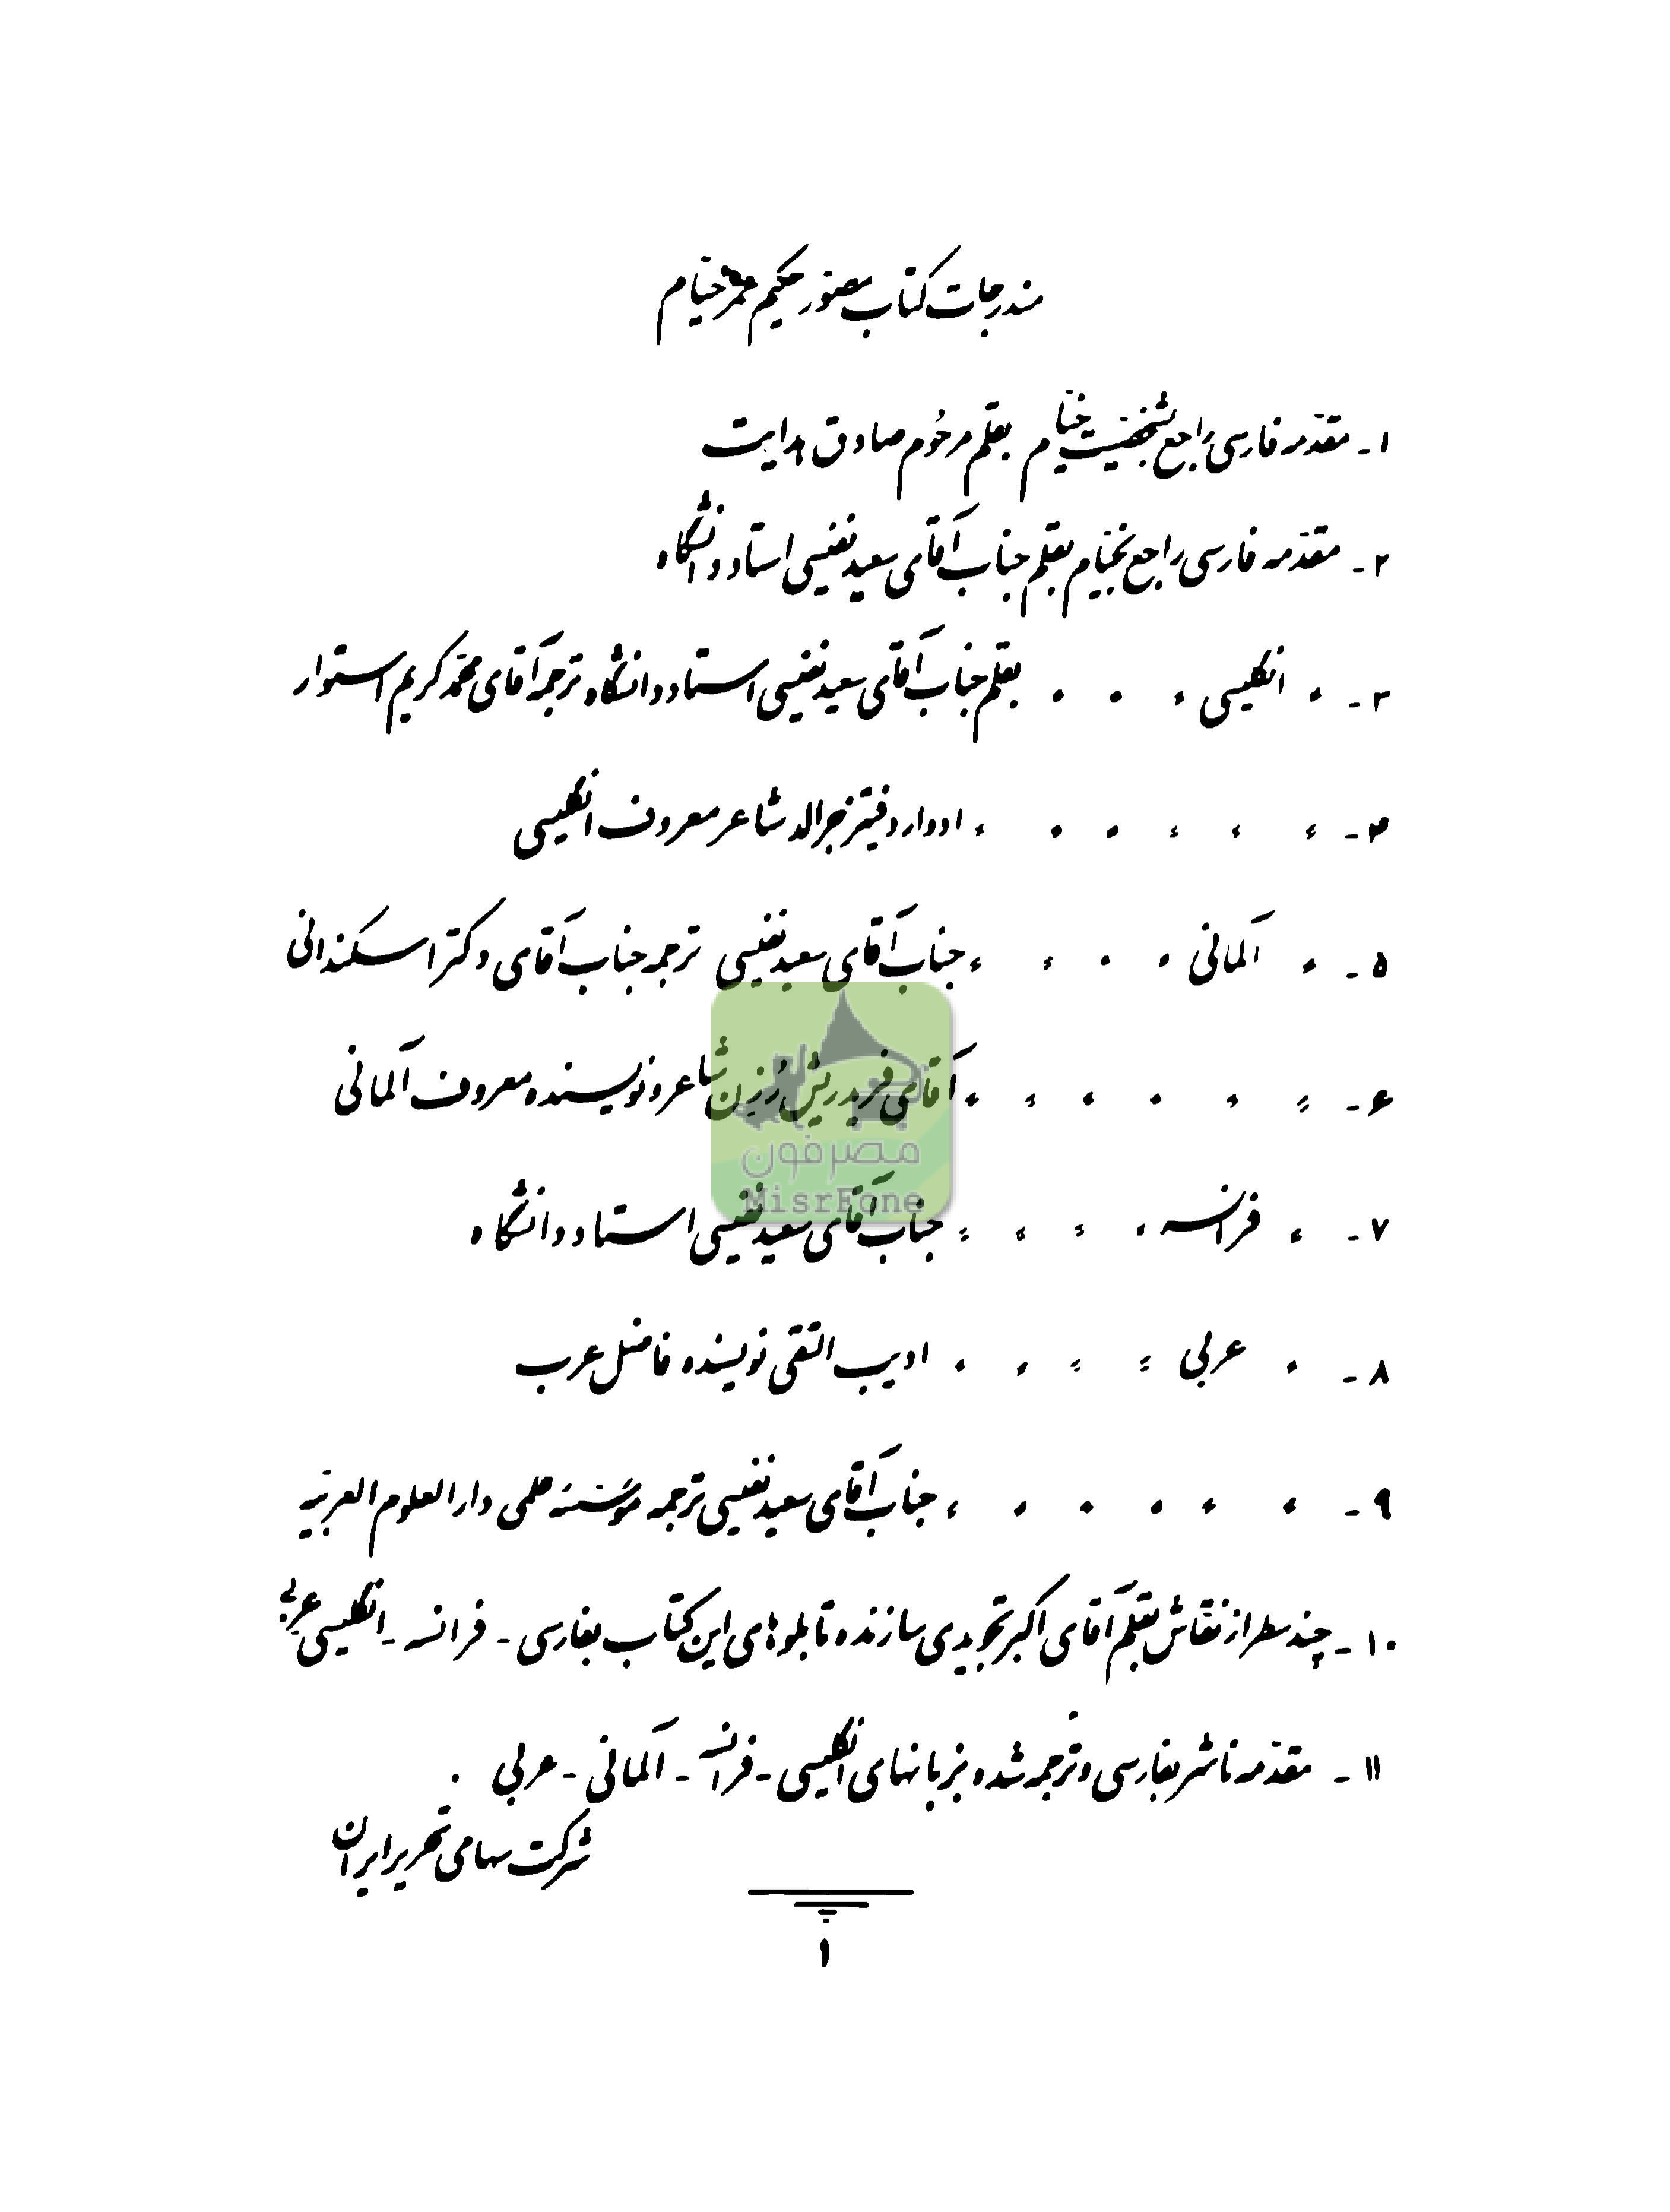 مندرجات کتاب مصور حکیم عمر خیام
۱- مقدمه فارسی راجع بشخصیت خیام بقلم مرحوم صادق هدایت
۲- مقدمه فارسی راجع بخیام بقلم جناب آقای سعید نفیسی استاد دانشگاه
۳- ٫ انگلیسی ٫ ٫ ٫ بقلم جناب آقای سعید نفیسی استاد دانشگاه ترجمه آقای محمد کریم استوار
۴- ٫ ٫ ٫ ٫ ٫ ٫ ادوارد فیتز جرالد شاعر معروف انگلیسی
۵- ٫ آلمانی ٫ ٫ ٫ ٫ جناب آقای سعید نفیسی ترجمه جناب آقای دکتر اسکندانی
۶- ٫ ٫ ٫ ٫ ٫ ٫ آقای فریدریش رُزِن شاعر و نویسنده معروف آلمانی
مصرفون
MisrFone
۷- ٫ فرانسه ٫ ٫ ٫ ٫ جناب آقای سعید نفیسی استاد دانشگاه
۸- ٫ عربی ٫ ٫ ٫ ٫ ادیب التقی نویسنده فاضل عرب
۹- ٫ ٫ ٫ ٫ ٫ ٫ جناب آقای سعید نفیسی ترجمه مؤسسه علمی دارالعلوم العربیه
۱۰- چند سطر از نقاش بقلم آقای اکبر تجویدی سازنده تابلوهای این کتاب بفارسی - فرانسه - انگلیسی عربی
۱۱- مقدمه ناشر بفارسی و ترجمه شده بزبانهای انگلیسی - فرانسه - آلمانی - عربی .
شرکت سهامی تحریر ایران
۱